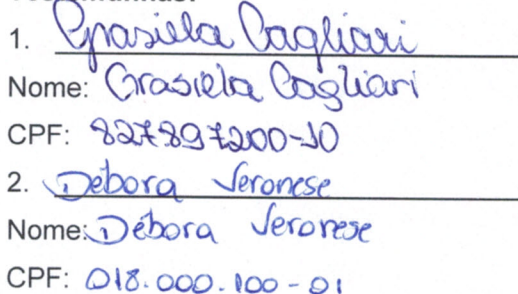 1. Grasiela Cagliari
Nome: Grasiela Cagliari
CPF: 827897200-10
2. Debora Veronese
Nome: Débora Veronese
CPF: 018.000.100-01